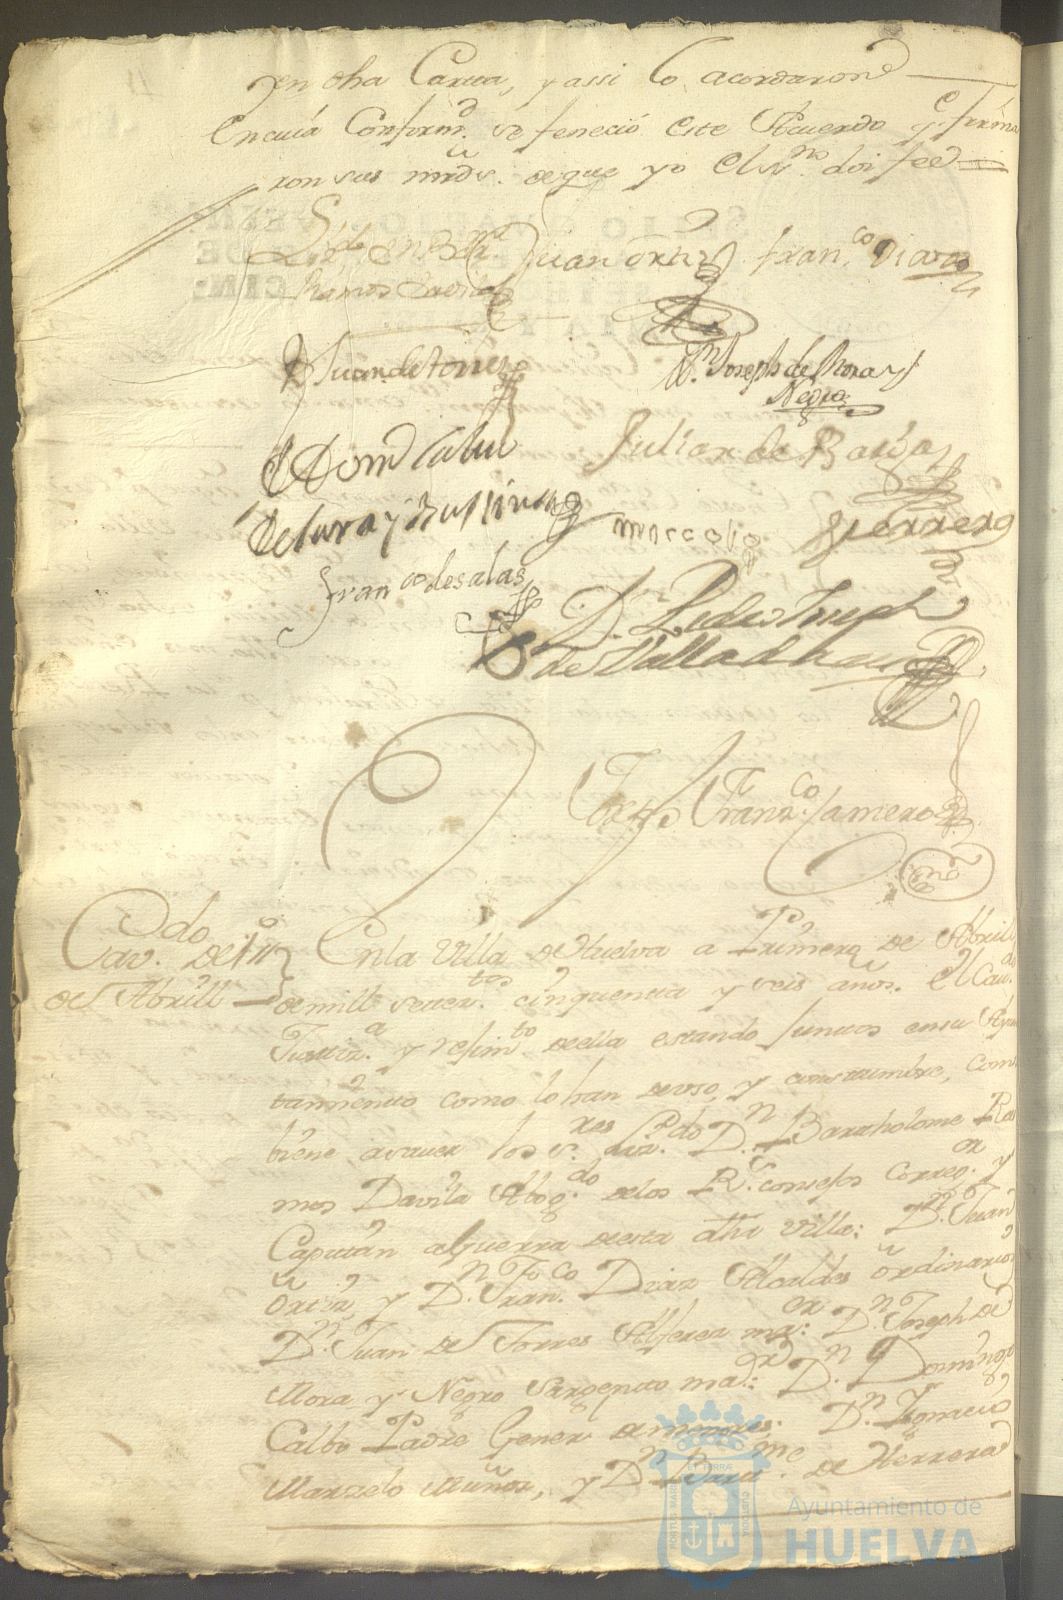 en dha Carta, y assi lo acordaron
En cuia Conformd. se feneció este Acuerdo y firma
ron sus mrds. de que yo el ssno. doi fee
Lizdo. Dn Bme
Ramos Davila
Juan Ortiz
Franco. Diaz
Dn Juan de Torres
Dn. Joseph de Mora y
Negro
Dn Domo Calbo
Julian de
de Lara y
Marcelo
Herrera
Franco de salas
D. Pedro Joseph
de Valladares
Franco. Camero
Cavdo. de 1º
de Abrill
En la Villa de Huelva a Primero de Abrill
de mill setectos. cinquenta y seis años. el Cavdo.
Justiza. y rejimto de ella estando juntos en su Ayun
tamiento como lo han de uso, y constumbre, com
biene a saver los sres. Lizdo. Dn. Bartholome Ra
mos Davila Abogdo. de los Rs. consejos Corregor. y
Capitan a Guerra de esta dha Villa: Dn. Juan
Ortiz, y Dn. Franco. Diaz Alcaldes ordinarios
Dn. Juan de Torres Alferez maor: Dn. Joseph de
Mora y Negro Sargento maor: Dn. Domingo
Calbo Padre Gener de menores: Dn. Ignacio
Marzelo Muñoz, y Dn Barme. de Herrera
PORTUS MARIS ET TERRAE CUSTODIA
Ayuntamiento de
HUELVA